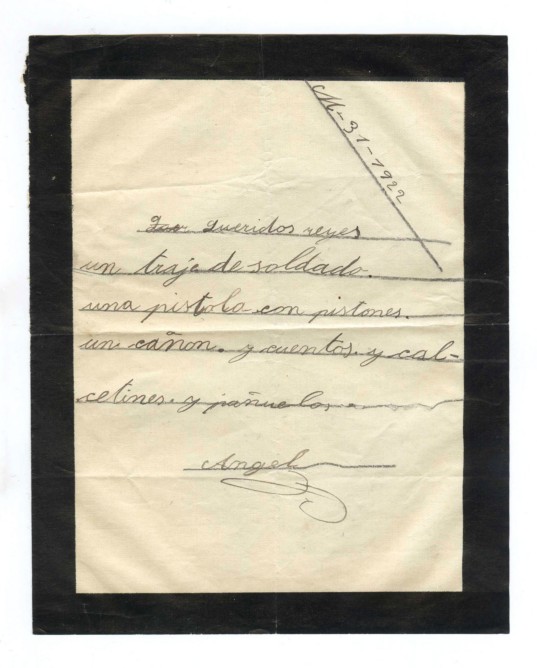 M-31-1922
Queridos reyes
un traje de soldado.
una pistola con pistones.
un cañon. y cuentos. y cal-
cetines. y pañuelos
Angel